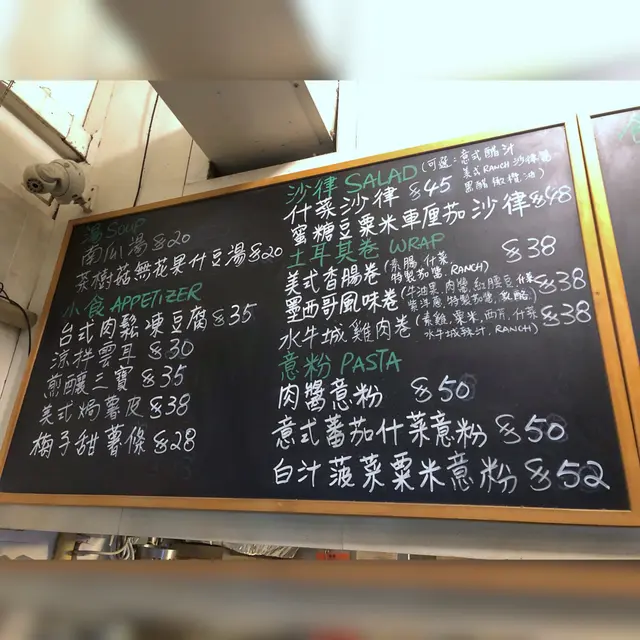 湯 SOUP
南瓜湯 $20
茶樹菇無花果什豆湯 $20
小食 APPETIZER
台式肉鬆凍豆腐 $35
涼拌雲耳 $30
煎釀三寶 $35
美式焗薯皮 $38
梅子甜薯條 $28
沙律 SALAD (可選：意式醋汁
美式RANCH沙律醬
黑醋橄欖油)
什菜沙律 $45
蜜糖豆粟米車厘茄沙律 $48
土耳其卷 WRAP
美式香腸卷 (素腸, 什菜, 特製茄醬, RANCH) $38
墨西哥風味卷 (牛油果, 肉醬, 紅腰豆, 什菜
紫洋蔥, 特製茄醬, 酸忌) $38
水牛城雞肉卷 (素雞, 粟米, 西芹, 什菜
水牛城辣汁, RANCH) $38
意粉 PASTA
肉醬意粉 $50
意式蕃茄什菜意粉 $50
白汁菠菜粟米意粉 $52